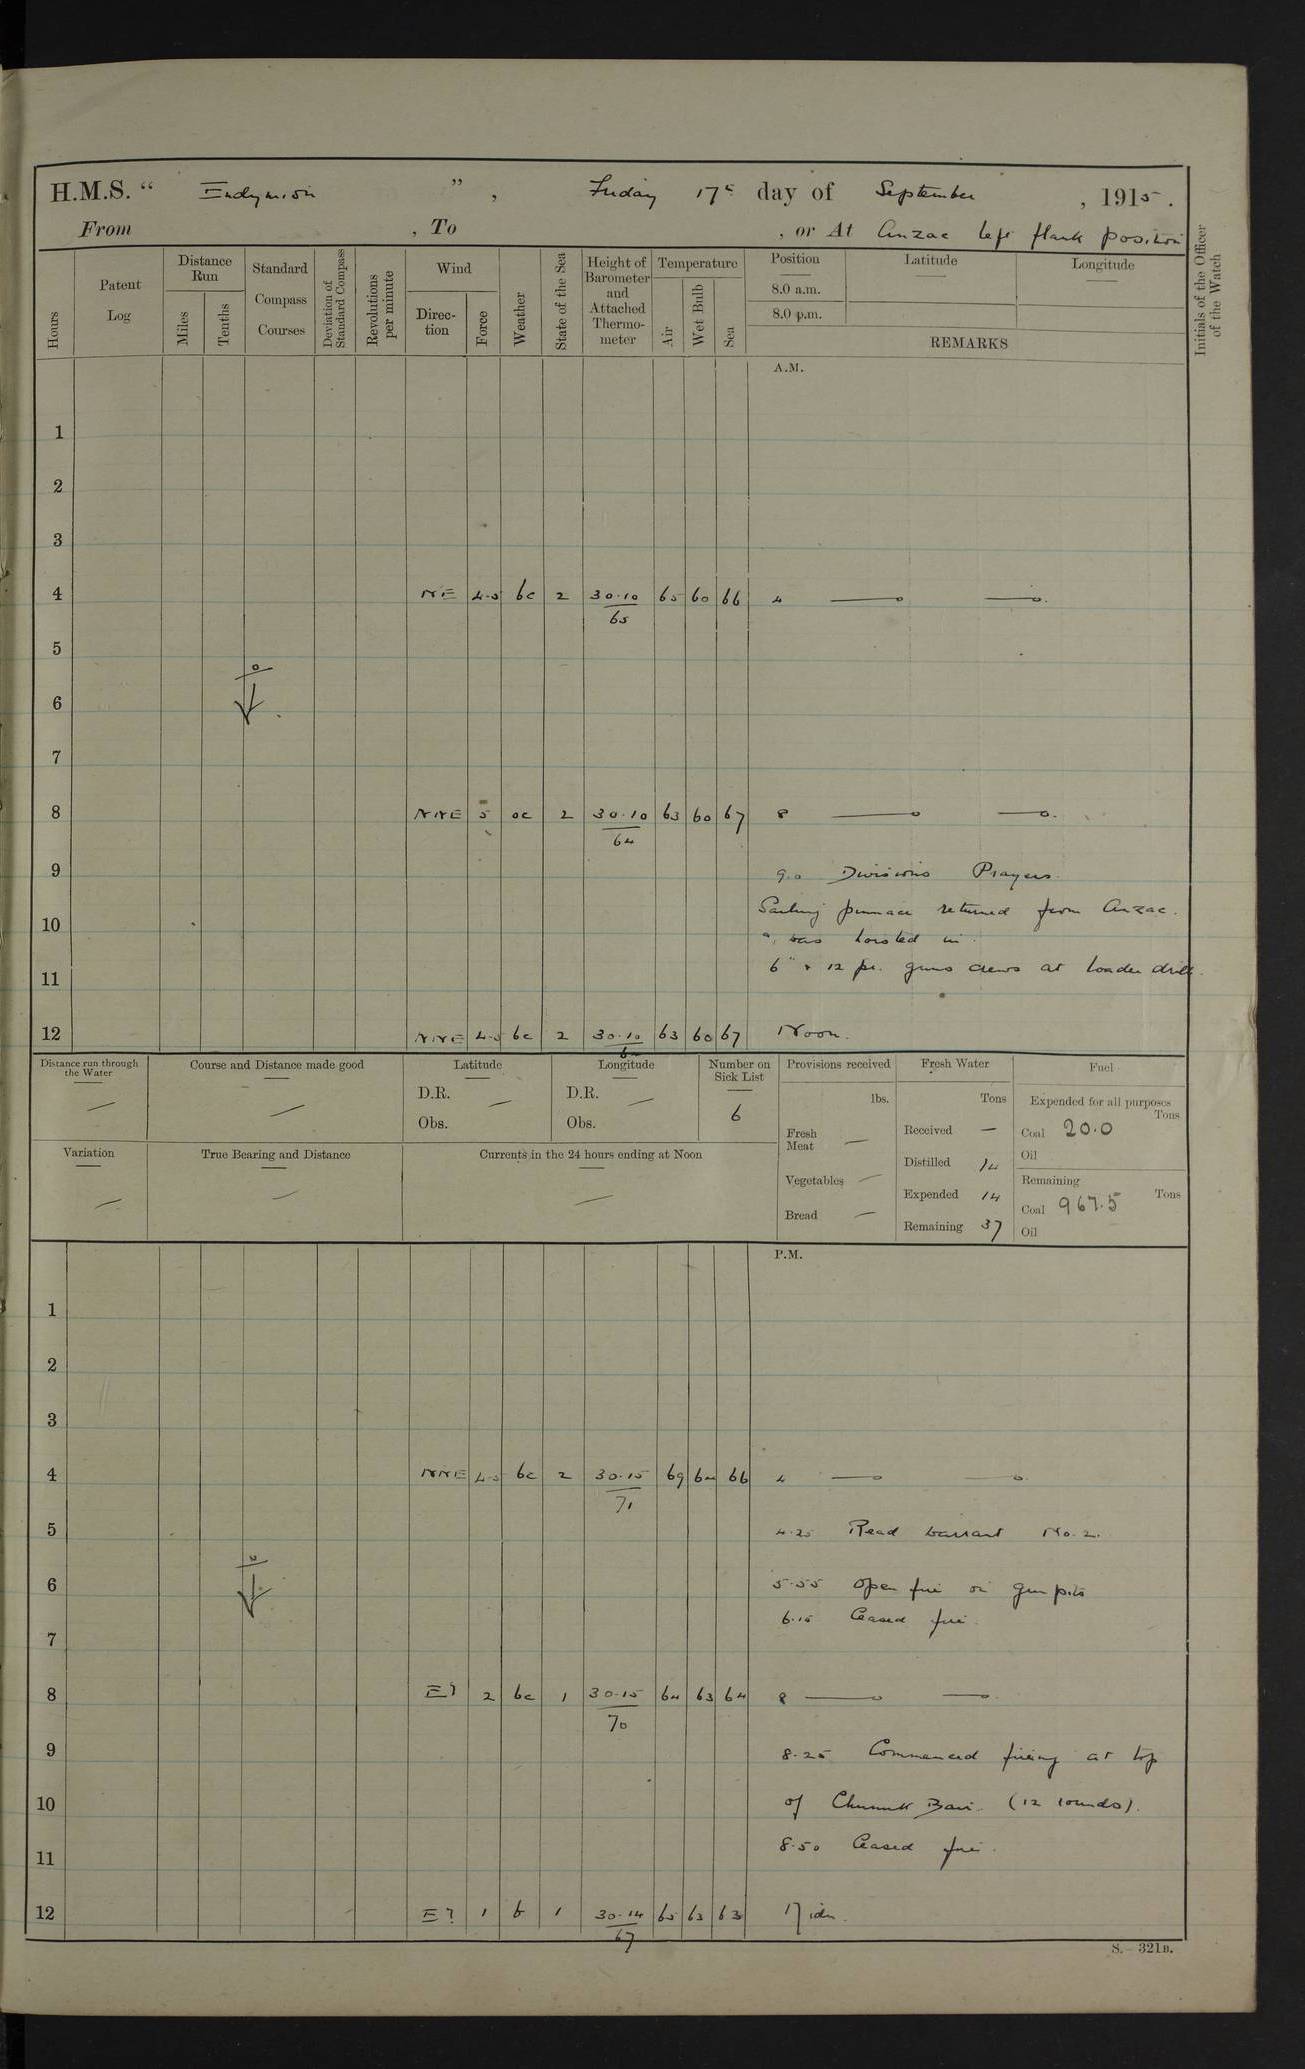 H.M.S. “ Endymion ” , Friday 17th day of September , 1915.
From , To , or At Anzac left flank position
Hours
Patent Log
Distance Run
Miles
Tenths
Standard Compass Courses
Deviation of Standard Compass
Revolutions per minute
Wind
Direction
Force
Weather
State of the Sea
Height of Barometer and Attached Thermometer
Temperature
Air
Wet Bulb
Sea
Position
8.0 a.m.
8.0 p.m.
Latitude
Longitude
REMARKS
Initials of the Officer of the Watch
A.M.
1
2
3
4 NE 4-5 bc 2 30.10 65 60 66 4
65
5
6
7
8 NNE 5 oc 2 30.10 63 60 67 8
64
9 9.0 Divisions Prayers
Sailing pinnace returned from Anzac.
10 was hoisted in.
6" & 12 pr. guns crews at loader drill
11
12 NNE 4-5 bc 2 30.10 63 60 67 Noon.
Distance run through the Water
Course and Distance made good
Latitude
D.R. —
Obs.
Longitude
D.R. —
Obs.
Number on Sick List
6
Provisions received
lbs.
Fresh Meat —
Vegetables —
Bread —
Fresh Water
Tons
Received —
Distilled 14
Expended 14
Remaining 37
Fuel
Expended for all purposes
Tons
Coal 20.0
Oil
Remaining
Tons
Coal 967.5
Oil
Variation
True Bearing and Distance
Currents in the 24 hours ending at Noon
P.M.
1
2
3
4 NNE 4-5 bc 2 30.15 69 64 66 4
71
5 4.25 Read warrant No. 2.
6 5.55 Open fire on gun pits
6.15 Ceased fire.
7
8 E? 2 bc 1 30.15 64 63 64 8
70
9 8.25 Commenced firing at top
10 of Chunuk Bair. (12 rounds).
11 8.50 Ceased fire.
12 E? 1 b 1 30.14 65 63 63 Midn.
67
S. 321B.